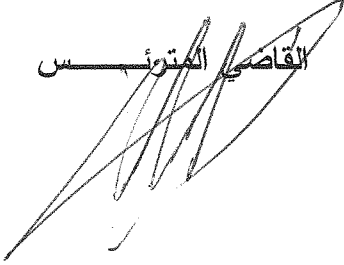 القاضي المترئـــــــس